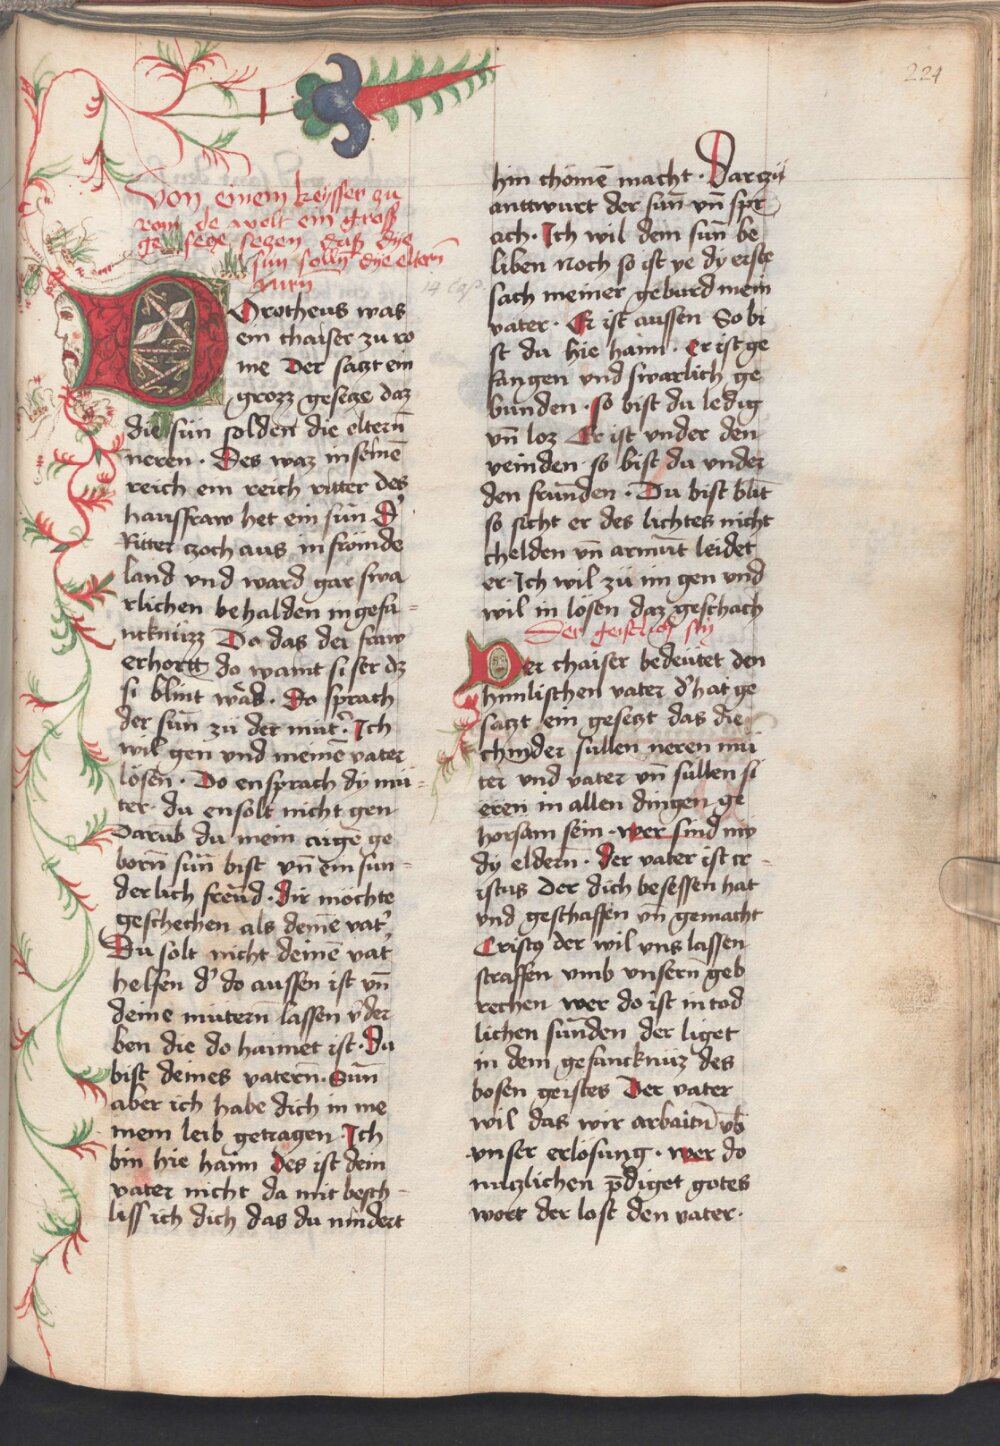 224
Von einem keysser zu
rom de wolt ein groß
gesecze seczen daz dye
sün solln dye eltern
nern
14 Cap.
Dorotheus was
ein chaiser zu ro
me Der saczt ein
grozz gesecze daz
die sün solden die elternn
neren. Des waz in seinē
reich ein reich ritter des
hausfraw het ein sün D'
Ritter zoch aus in frömde
land vnd ward gar swa
rlichen behalden in gefa-
ncknüzz Do das der fraw
erhortt do waint si ser dz
si blint ward. Do sprach
der sün zü der müt'. Ich
wil gen vnd meinē vater
lösen. Do ensprach dy mü-
ter du ensolt nicht gen
Darūb du mein aigē ge
born sün bist vn̄ ein sun-
derlich freud. Dir möchte
geschechen als deinē vat'
Du solt nicht deinē vat'
helfen d' do aussen ist vn̄
deine mütern̄ lassen v'der
ben die do haimet ist. Du
bist deines vatern̄. Sun̄
aber ich habe dich in me
inem leib getragen. Ich
bin hie haim Des ist dein
vater nicht da mit besch-
liss ich dich das du nindert
hin chömē macht. Darzü
anttwurt der sün vn̄ spr
ach. Ich wil dem sün be
liben noch so ist ye dy erste
sach meiner geburd mein
vater. Er ist aussen So bi
st du hie haim. Er ist ge
fangen vnd swarlich ge
bunden. so bist du ledig
vn̄ loz Er ist vnder den
veinden so bist du vnder
den frunden. Du bist blīt
so sicht er des lichtes nicht
chelden vn̄ armüt leidet
er. Ich wil zü im gen vnd
wil in lösen daz geschach
Der geistlich sin
Der chaiser bedeütet den
himlischen vater d' hat ge
saczt ein gesetzt das die
chinder sullen neren mü
ter vnd vater vn̄ sullen si
eren in allen dingen ge
horsam sein. wer sind nv
dy eldern̄. Der vater ist cr-
istus Der dich besessen hat
vnd geschaffen vn̄ gemacht
Cristus der wil vns lassen
straffen vmb vnsern̄ geb
rechen wer do ist in tod
lichen sünden der liget
in dem gefanckniiz des
bosen geistes Der vater
wil das wir arbaitn̄ vb
vnser erlosung. wer do
nuczlichen p̄diget gotes
wort der lost den vater.